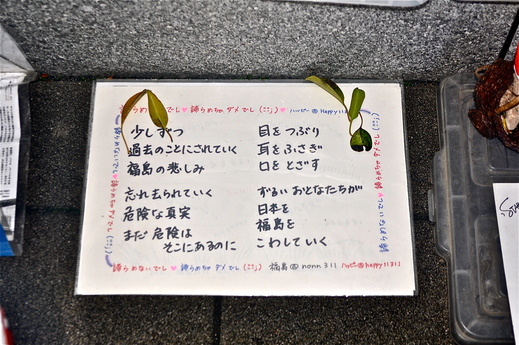 諦らめないでレ♥諦らめちゃダメでレ(ﾆﾆ;)♥ハッピー@Happy11311
少しずつ
過去のことにされていく
福島の悲しみ
忘れ去られていく
危険な真実
まだ危険は
そこにあるのに
目をつぶり
耳をふさぎ
口をとざす
ずるいおとなたちが
日本を
福島を
こわしていく
諦らめないでレ♥諦らめちゃダメでレ(ﾆﾆ;) 福島@nonn311 ハッピー@happy11311